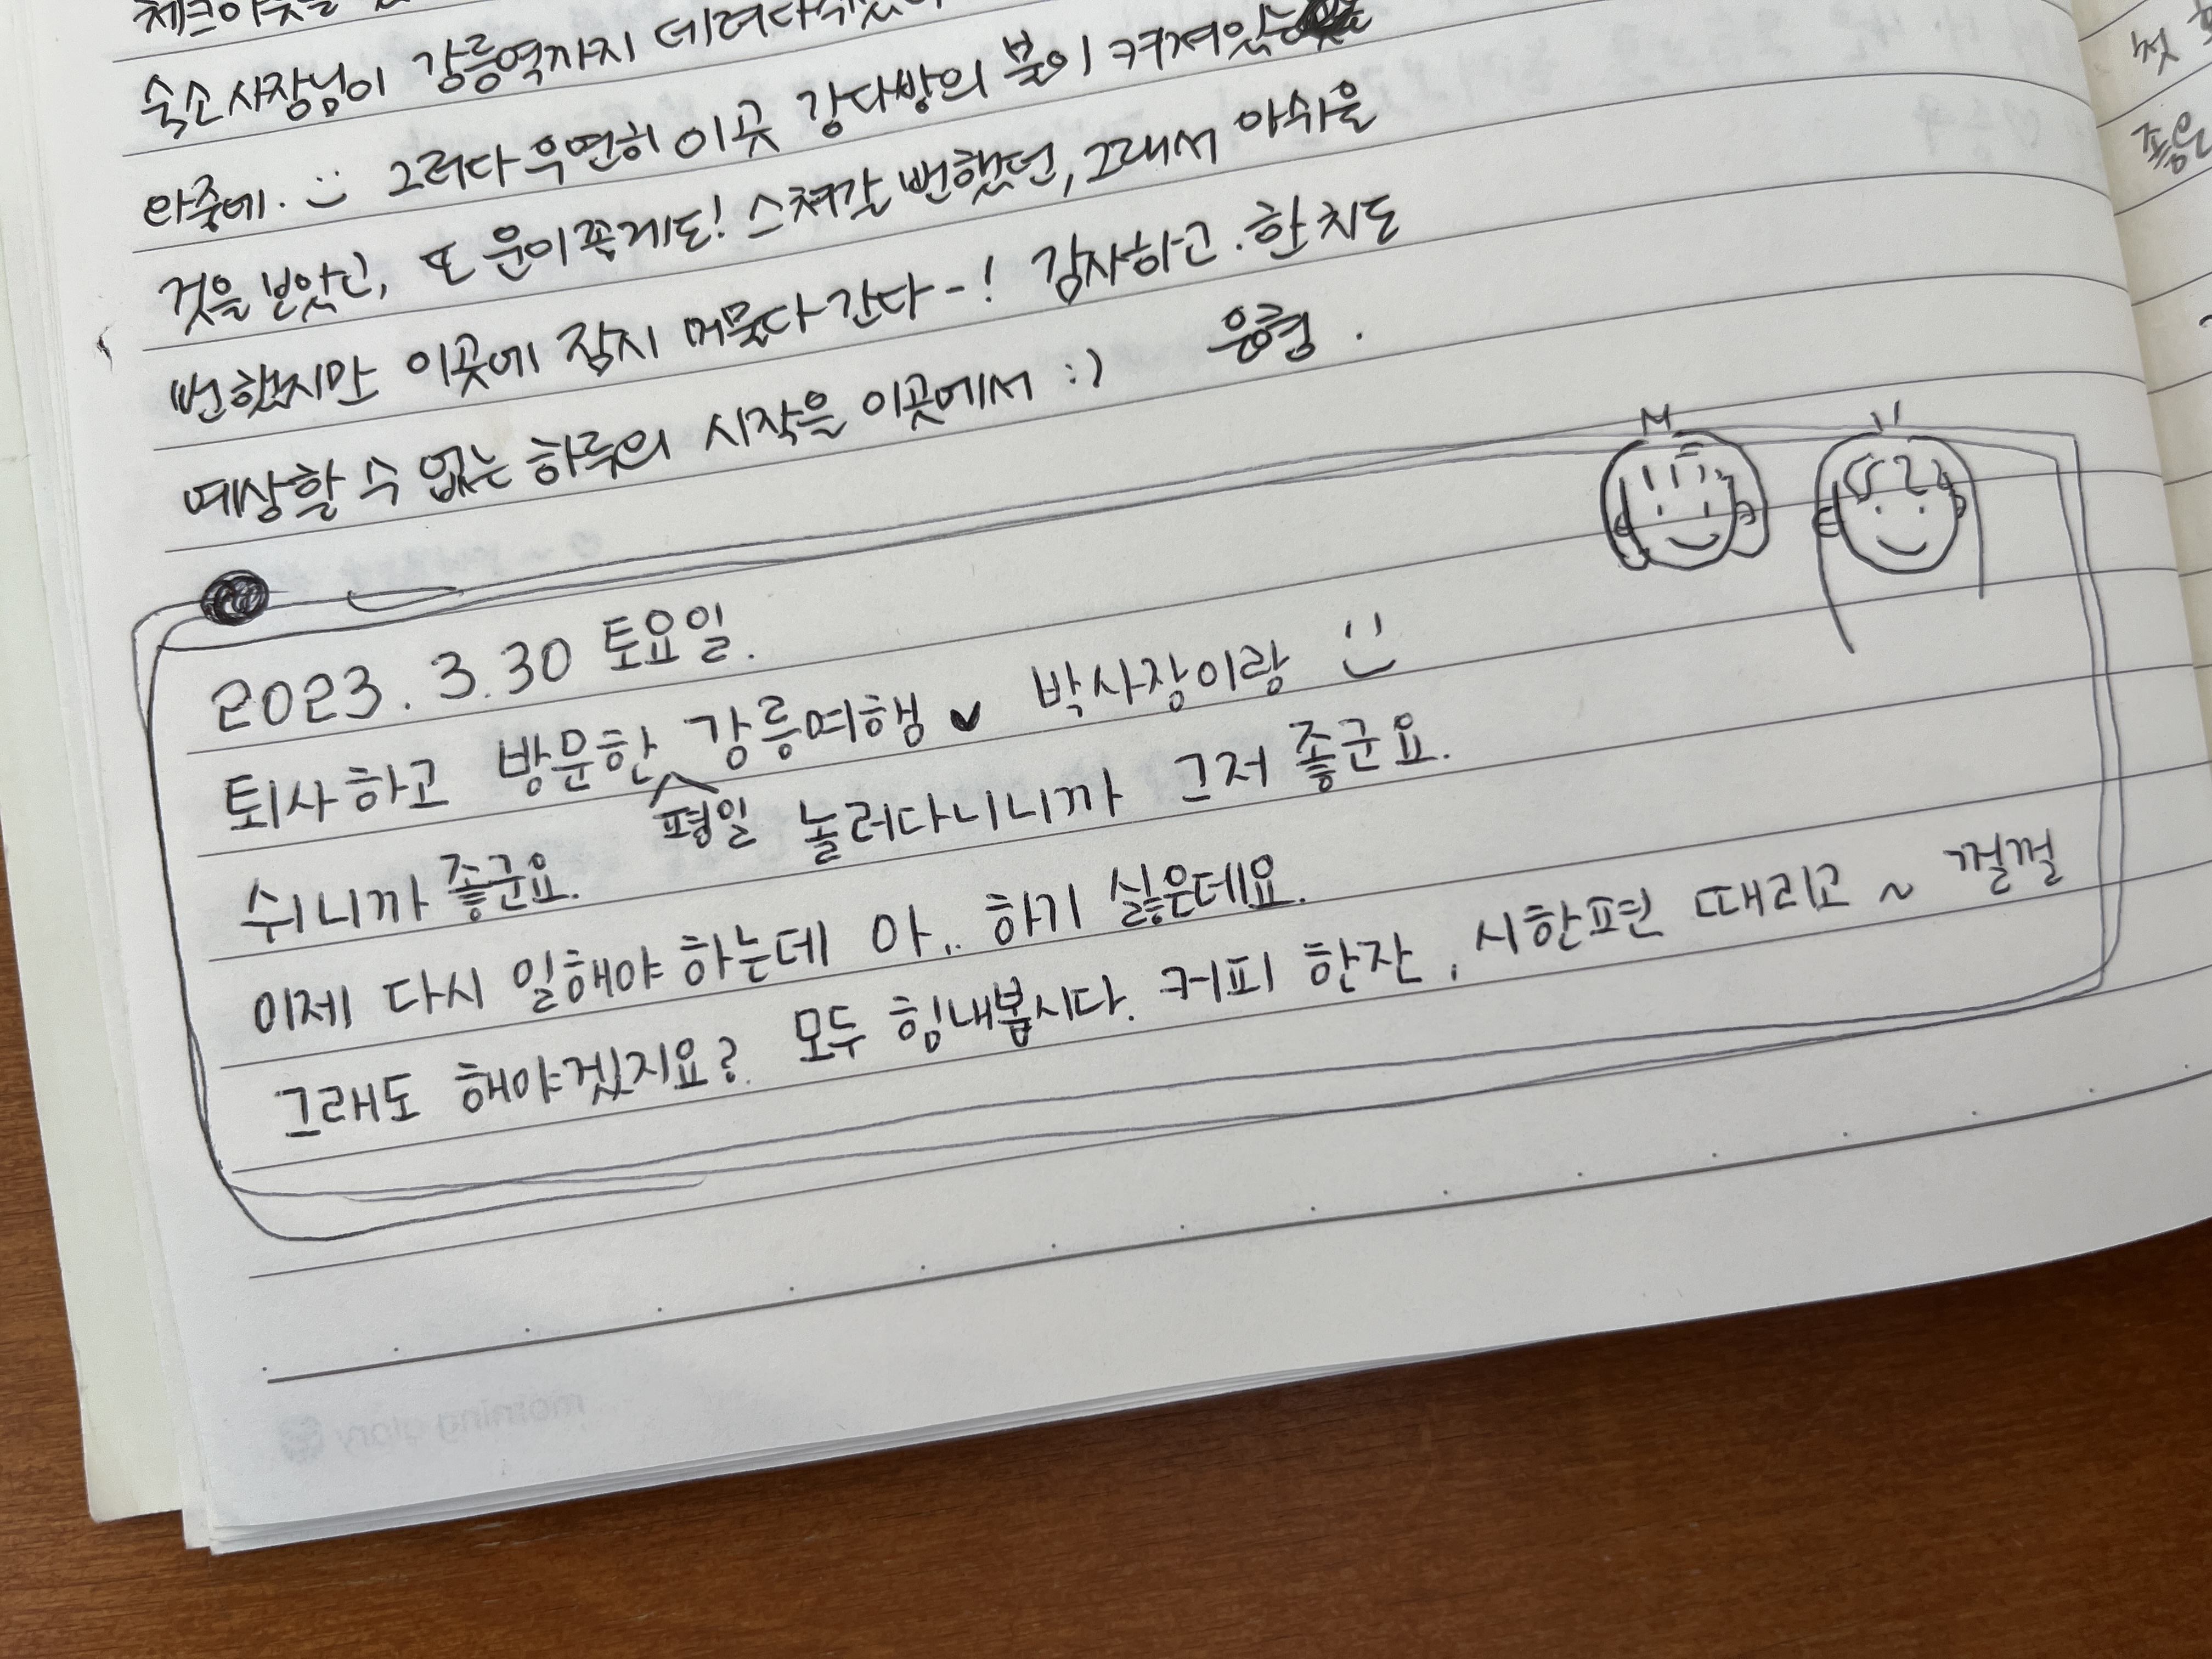 체크아웃을
숙소사장님이 강릉역까지 데려다주셨
와중에. 그러다 우연히 이곳 강다방의 불이 켜져있는
것을 보았고, 또 운이좋게도! 스쳐갈 뻔했던, 그래서 아쉬울
뻔했지만 이곳에 잠시 머물다 간다-! 감사하고. 한치도
예상할 수 없는 하루의 시작을 이곳에서 :) 은형.
2023. 3.30 토요일.
퇴사하고 방문한 강릉여행♥ 박사장이랑
쉬니까 좋군요. 평일 놀러다니니까 그저 좋군요.
이제 다시 일해야 하는데 아.. 하기 싫은데요.
그래도 해야겠지요? 모두 힘내봅시다. 커피 한잔, 시한편 때리고~ 껄껄
morning glory
첫
좋은